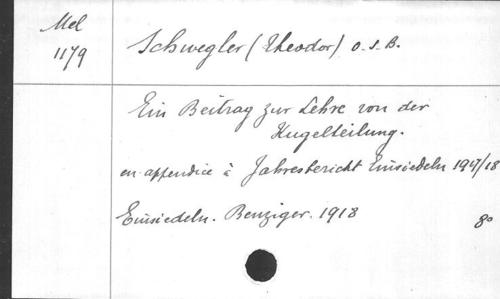 Mel
1179
Schwegler (Theodor) O.S.B.
Ein Beitrag zur Lehre von der
Kugelteilung.
en appendice à Jahresbericht Einsiedeln 1917/18
Einsiedeln. Benziger. 1918
8°